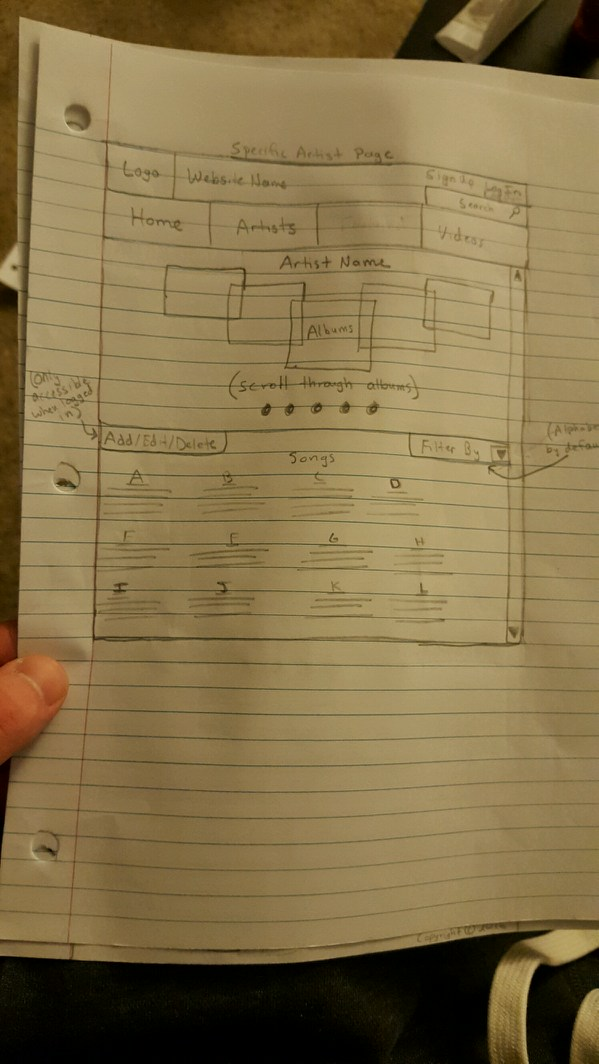 Specific Artist Page
Logo
Website Name
Sign Up Log In
Search
Home
Artists
Videos
Artist Name
Albums
(scroll through albums)
(only
accessible
when logged
in)
Add/Edit/Delete
Filter By
(Alphabe
by defau
Songs
A B C D
F E G H
I J K L
Copyright